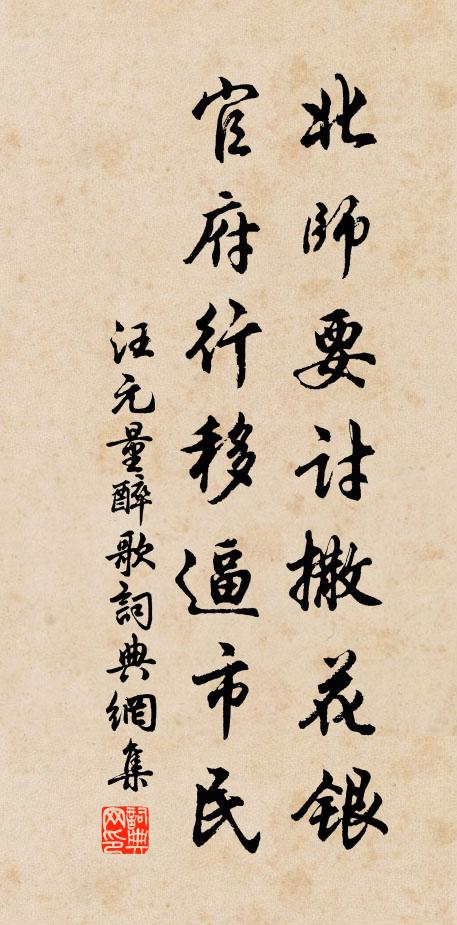 北師要討撒花銀
官府行移逼市民
汪元量醉歌詞典網集
詞典网印